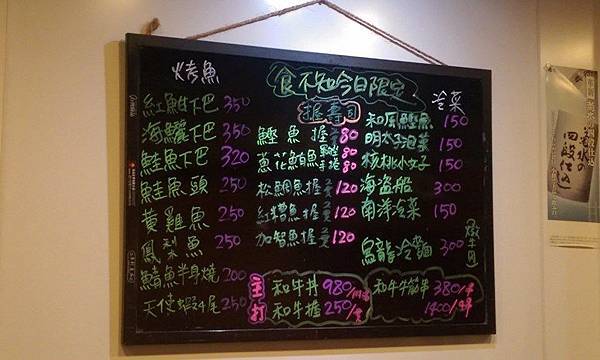 食不知今日限定
烤魚
紅魽下巴 350
海鱺下巴 350
鮭魚下巴 320
鮭魚頭 250
黃雞魚 250
鳳梨魚 250
鯖魚半身燒 200
天使蝦4尾 250
握壽司
鰹魚握 2貫 80
蔥花鮪魚 80
松鯛魚握 2貫 120
紅糟魚握 2貫 120
加智魚握 2貫 120
冷菜
和風鰹魚 150
明太子日菜 150
核桃小女子 150
海盜船 300
南洋冷菜 150
烏龍冷麵 300
主打
和牛丼 980
和牛握 250/貫
和牛牛筋串 380/串
1400/4串
四段仕込